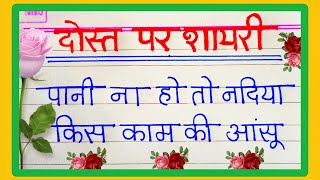 दोस्त पर शायरी
पानी ना हो तो नदिया
किस काम की आंसू